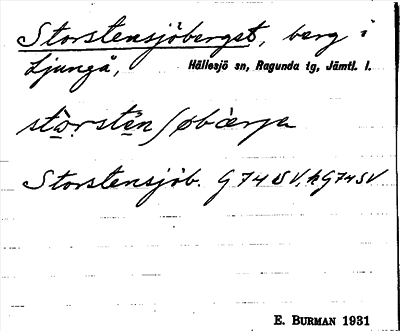 Storstensjöberget, berg i
Ljungå, Hällesjö sn, Ragunda tg, Jämtl. l.
Storstensjöb. G 74 SV, k G 74 SV
E. BURMAN 1931